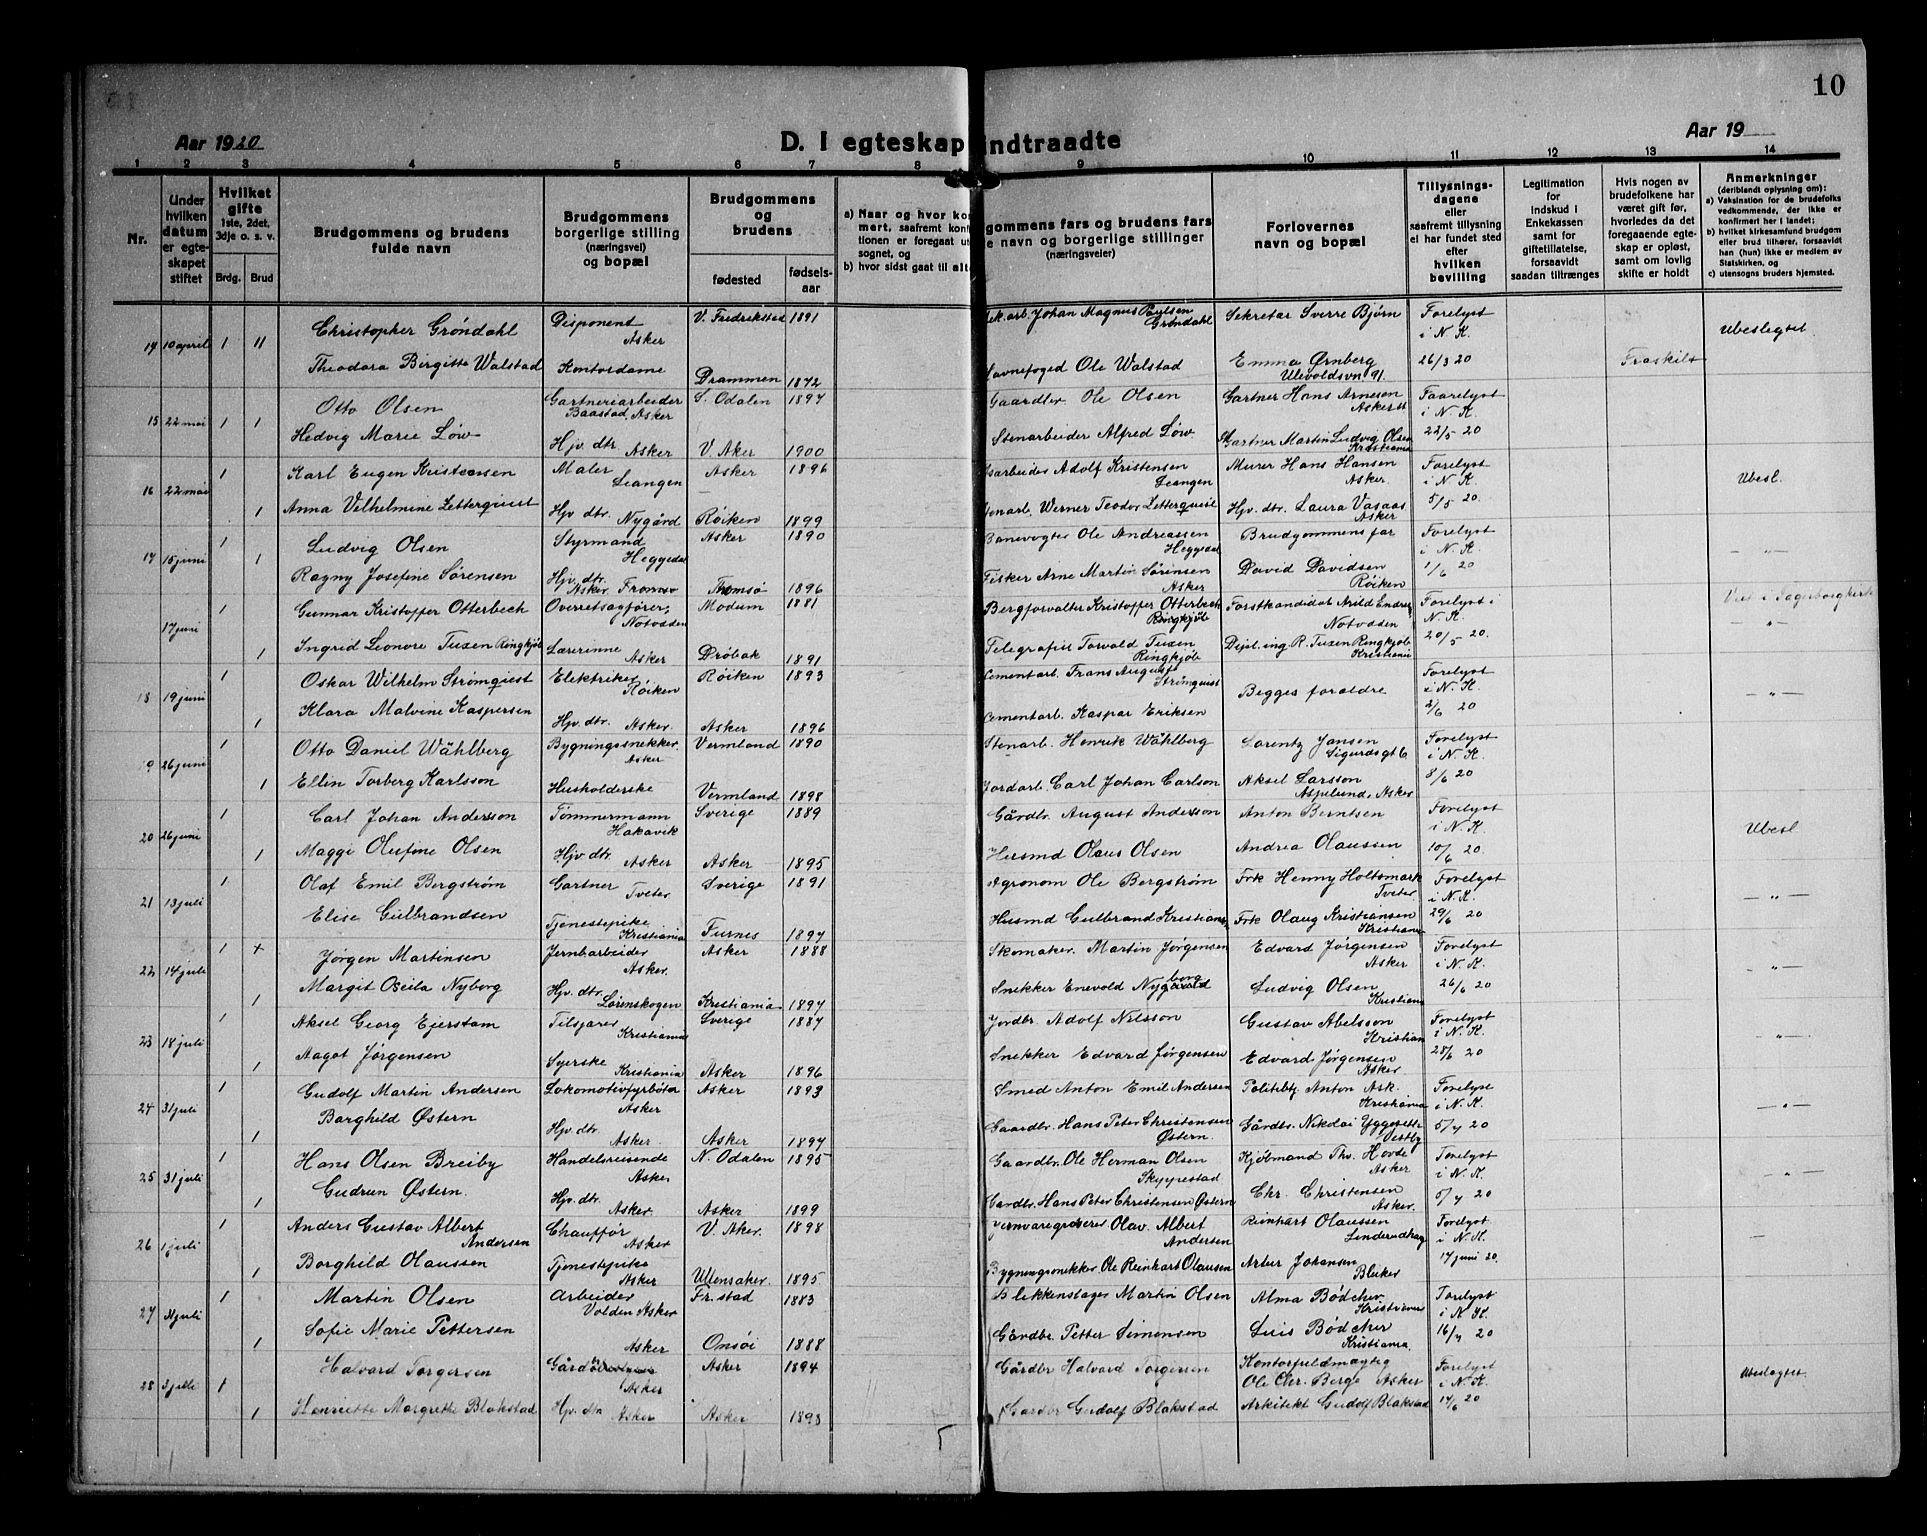 10
Aar 1920
D. I egteskap indtraadte
Aar 19
1 2 3 4 5 6 7 8 9 10 11 12 13 14
Nr.
Under hvilken datum er egteskapet stiftet
Hvilket gifte 1ste, 2det, 3dje o. s. v.
Brdg. Brud
Brudgommens og brudens fulde navn
Brudgommens borgerlige stilling (næringsvei) og bopæl
Brudgommens og brudens
fødested
fødselsaar
a) Naar og hvor kon
mert, saafremt konf
tionen er foregaat ut
sognet, og
b) hvor sidst gaat til alte
gommens fars og brudens fars
e navn og borgerlige stillinger
(næringsveier)
Forlovernes navn og bopæl
Tillysningsdagene eller saafremt tillysning ei har fundet sted efter hvilken bevilling
Legitimation for Indskud i Enkekassen samt for giftetillatelse, forsaavidt saadan tiltrænges
Hvis nogen av brudefolkene har været gift før, hvorledes da det foregaaende egteskap er opløst, samt om lovlig skifte er holdt
Anmerkninger
(deriblandt oplysning om):
a) Vaksination for de brudefolks vedkommende, der ikke er konfirmert her i landet;
b) hvilket kirkesamfund brudgom eller brud tilhører, forsaavidt han (hun) ikke er medlem av Statskirken, og
c) utensogns bruders hjemsted.
14 10 april 1 11 Christopher Grøndahl Disponent Asker V. Fredrikstad 1891 Johan Magnus Paulsen Grøndahl Sekretær Sverre Bjørn Forelyst i N. K. 26/3 20 Ubeslegtet
Theodora Birgitte Walstad Kontordame Drammen 1872 Havnefoged Ole Walstad Emma Ørnberg Ulevoldsvn 91. Fraskilt
15 22 mai 1 1 Otto Olsen Gartneriarbeider Baastad, Asker S. Odalen 1897 Gaardbr Ole Olsen Gartner Hans Arnesen Forelyst i N. K. 22/5 20
Hedvig Marie Løw Hjv. dtr. Asker V. Aker 1900 Stenarbeider Alfred Løw. Gartner Martin Ludvig Olsen Kristiania
16 22 mai 1 Karl Eugen Kristensen Maler Leangen Asker 1896 Adolf Kristensen Leangen Murer Hans Hansen Asker. Forelyst i N. K. 5/5 20. Ubesl.
1 Anna Vilhelmine Zetterquist Hjv dtr. Nygård Røiken 1899 Werner Teodor Zetterquist Hjv. dtr. Laura Vasaas Asker
17 15 juni 1 Ludvig Olsen Styrmand Heggedal Asker 1890 Banevogter Ole Andreassen Heggedal Brudgommens far Forelyst i N. K. 1/6 20 -"-
1 Ragny Josefine Sørensen Hjv. dtr. Asker Tromsø Tromsø 1896 Fisker Arne Martin Sørensen Asker David Davidsen Røiken
17 juni 1 Gunnar Kristoffer Otterbech Overretsagfører, Notodden Modum 1881 Bergforvalter Kristoffer Otterbech Ringkjøb Forstkandidat Arild Endres Notodden Forelyst i N. K. 20/5 20. -"-
1 Ingrid Leonore Tuxen Ringkjøb Lærerinne Asker Drøbak 1891 Telegrafist Torvald Tuxen Ringkjøb Dipl. ing. R. Tuxen Ringkjøb Kristiania
18 19 juni 1 Oskar Wilhelm Strømquist Elektriker Røiken Røiken 1893 Cementarb. Frans August Strømquist Begges foreldre Forelyst i N. K. 2/6 20 -"-
1 Klara Malvine Kaspersen Hjv. dtr. Asker. Asker 1896 Cementarb. Kaspar Eriksen
9 26 juni 1 Otto Daniel Wåhlberg Bygningssnekker. Asker Vermland 1890 Stenarb. Henrik Wåhlberg Lorentz Jansen Sigurdsgt 6 Forelyst i N. K. 8/6 20
1 Ellin Torberg Karlsson Husholderske Vermland 1898 Jordarb. Carl Johan Carlson Aksel Larsson Aspelund, Asker
20 26 juni 1 Carl Johan Andersson Tømmermann Hakavik Sverige 1889 Gårdbr. August Andersson Anton Berntsen Forelyst i N. K. 10/6 20. Ubesl
1 Maggi Olufine Olsen Hjv. dtr. Asker Asker 1895 Husmd Olaus Olsen Andrea Olaussen
21 13 juli 1 Olaf Emil Bergstrøm Gartner Tveter Sverige 1891 Agronom Ole Bergstrøm Frk Henny Holtsmark Tveter Forelyst i N. K. 29/6 20 -"-
Elise Gulbrandsen Tjenestepike Kristiania Furnes 1897 Husmd Gulbrand Kristians Frk Olaug Kristiansen Kristiania
22 14 juli 1 + Jørgen Martinsen Jernbarbeider Asker. Asker 1888 Skomaker. Martin Jørgensen Edvard Jørgensen Asker Forelyst i N. K. 26/6 20 -"-
1 Margit Nyborg Hjv. dtr. Lørenskogen Kristiania 1897 Snekker Enevold Nyborg Ludvig Olsen Kristiania
23 18 juli 1 Aksel Georg Ejerstam Kristiania Sverige 1887 Jordbr. Adolf Nilsson Gustav Abelsson Kristian Forelyst i N. K. 28/6 20 -"-
1 Aagot Jørgensen Syerske Kristiania Asker 1896 Snekker Edvard Jørgensen Edvard Jørgensen Asker
24 31 juli 1 Gudolf Martin Andersen Lokomotivfyrbøter Asker Asker 1893 Smed Anton Emil Andersen Politibtj Anton Ask. Kristiania Forelyst i N. K. 5/7 20 -"-
1 Borghild Østern Hjv. dtr. Asker. Asker 1897 Gaardbr. Hans Peter Christensen Østern. Gårdbr. Nikolai Yggeseth Vestby
25 31 juli 1 Hans Olsen Breiby Handelsreisende Asker N. Odalen 1895 Gaardbr. Ole Herman Olsen Skyppestad Kjøbmand Th. Hovde Asker Forelyst i N. K. 5/7 20 -"-
1 Gudrun Østern. Hjv. dtr. Asker. Asker 1899 Gardbr. Hans Peter Christensen Østern Chr. Christensen Asker.
26 1 juli 1 Anders Gustav Albert Andersen Chauffør Asker V. Aker. 1898 Jernvaregroserer Olav. Albert Andersen Reinhart Olaussen Linderudhag Forelyst i N. K. 17 juni 20.
1 Borghild Olaussen Tjenestepike Asker Ullensaker. 1895 Bygningssnekker Ole Reinhart Olausen Artur Johansen Bleker
27 juli 1 Martin Olsen Arbeider Volden Asker Fr. stad 1883 Blikkenslager Martin Olsen Alma Bødcher. Kristiania Forelyst i N. K. 16/7 20
1 Sofie Marie Pettersen Asker Onsøi 1888 Gårdbr. Petter Simensen Luis Bødcher Kristiania.
28 juli 1 Halvard Torgersen Asker Asker 1894 Gårdbr Halvard Torgersen Kontorfuldmægtig Ole Chr. Berge Asker Forelyst i N. K. 14/6 20 Ubeslegtet.
1 Henriette Margrethe Blakstad Hjv. dtr Asker Asker 1893 Gårdbr Gudolf Blakstad Arkitekt Gudolf Blakstad